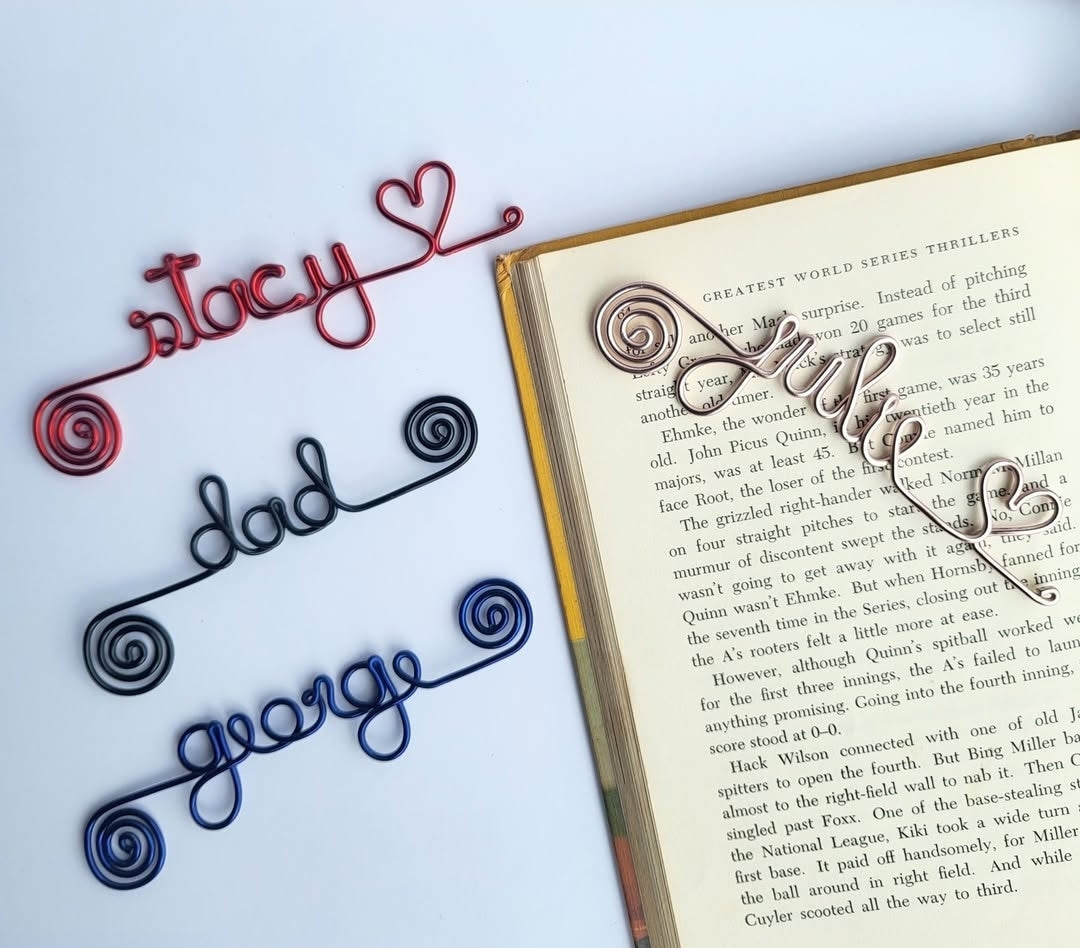 stacy
dad
george
julie
GREATEST WORLD SERIES THRILLERS
another Mack surprise. Instead of pitching
won 20 games for the third
straight year, Mack's strategy was to select still
another old timer.
Ehmke, the wonder of the first game, was 35 years
old. John Picus Quinn, in his twentieth year in the
majors, was at least 45. But Connie named him to
face Root, the loser of the first contest.
The grizzled right-hander walked Norm McMillan
on four straight pitches to start the game and a
murmur of discontent swept the stands. No, Connie
wasn't going to get away with it again, they said.
Quinn wasn't Ehmke. But when Hornsby fanned for
the seventh time in the Series, closing out the inning
the A's rooters felt a little more at ease.
However, although Quinn's spitball worked we
for the first three innings, the A's failed to laun
anything promising. Going into the fourth inning,
score stood at 0–0.
Hack Wilson connected with one of old Ja
spitters to open the fourth. But Bing Miller ba
almost to the right-field wall to nab it. Then C
singled past Foxx. One of the base-stealing st
the National League, Kiki took a wide turn
first base. It paid off handsomely, for Miller
the ball around in right field. And while
Cuyler scooted all the way to third.